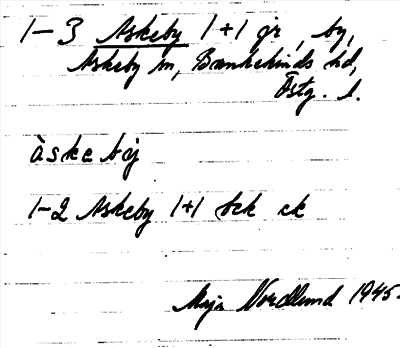 1-3 Askeby 1+1 gr, by,
Askeby sn, Bankekinds hd,
Östg. l.
àskebỳ
1-2 Askeby 1+1 bek ek
Maja Nordlund 1945.